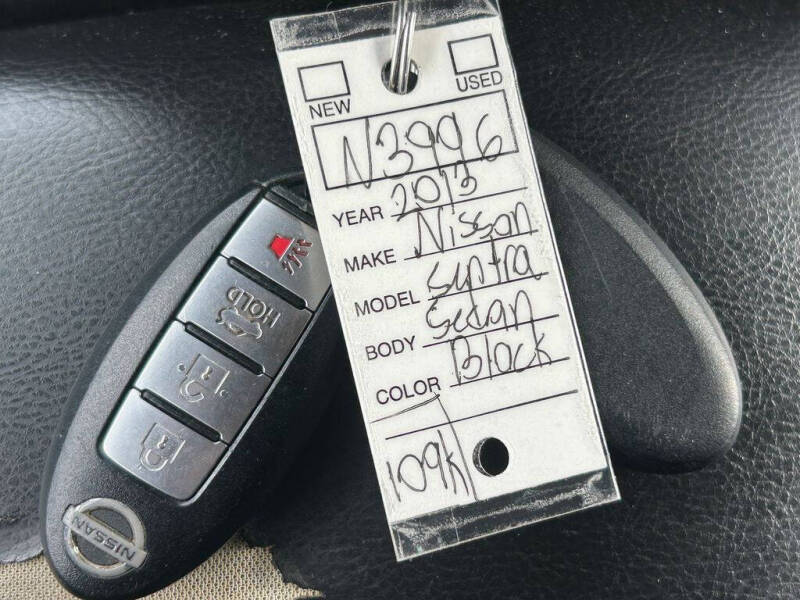 NEW USED
N3996
YEAR 2013
MAKE Nissan
MODEL Sentra
BODY Sedan
COLOR Black
109K
HOLD
NISSAN